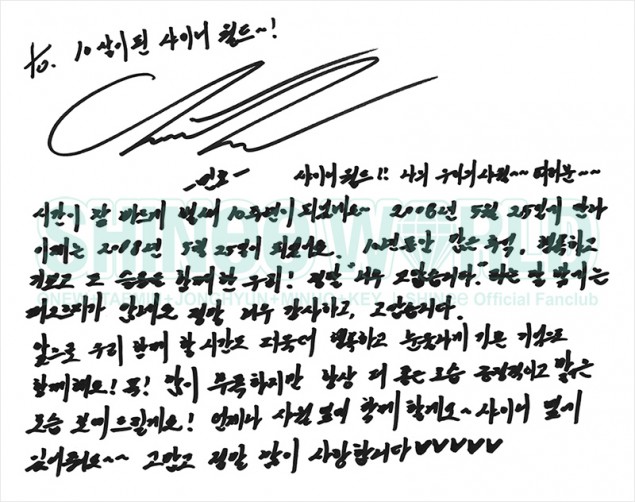 To. 10살이 된 샤이니 월드~!
-민호- 샤이니월드!! 나의 우리의 사랑~~ 여러분~~
시간이 참 빠르게 벌써 10주년이 되었네요~ 2008년 5월 25일이
이제는 2018년 5월 25일이 되었네요. 10년동안 많은 추억, 행복하고
기쁘고 모습을 함께한 우리! 정말 너무 고맙습니다. 라는 말 밖에는
떠오르지가 않네요 정말 너무 감사하고, 고맙습니다.
앞으로 우리 함께 할 시간도 더욱더 행복하고 눈부시게 기쁜 기억으로
함께해요! 꼭! 많이 부족하지만 항상 더 좋은 모습 긍정적이고 밝은
모습 보여드릴게요! 언제나 사랑 함께 할게요~ 샤이니 옆에
있어줘요~~ 고맙고 정말 많이 사랑합니다♥♥♥♥♥
SHINee WORLD
ONEW+TAEMIN+JONGHYUN+MINHO+KEY SHINee Official Fanclub